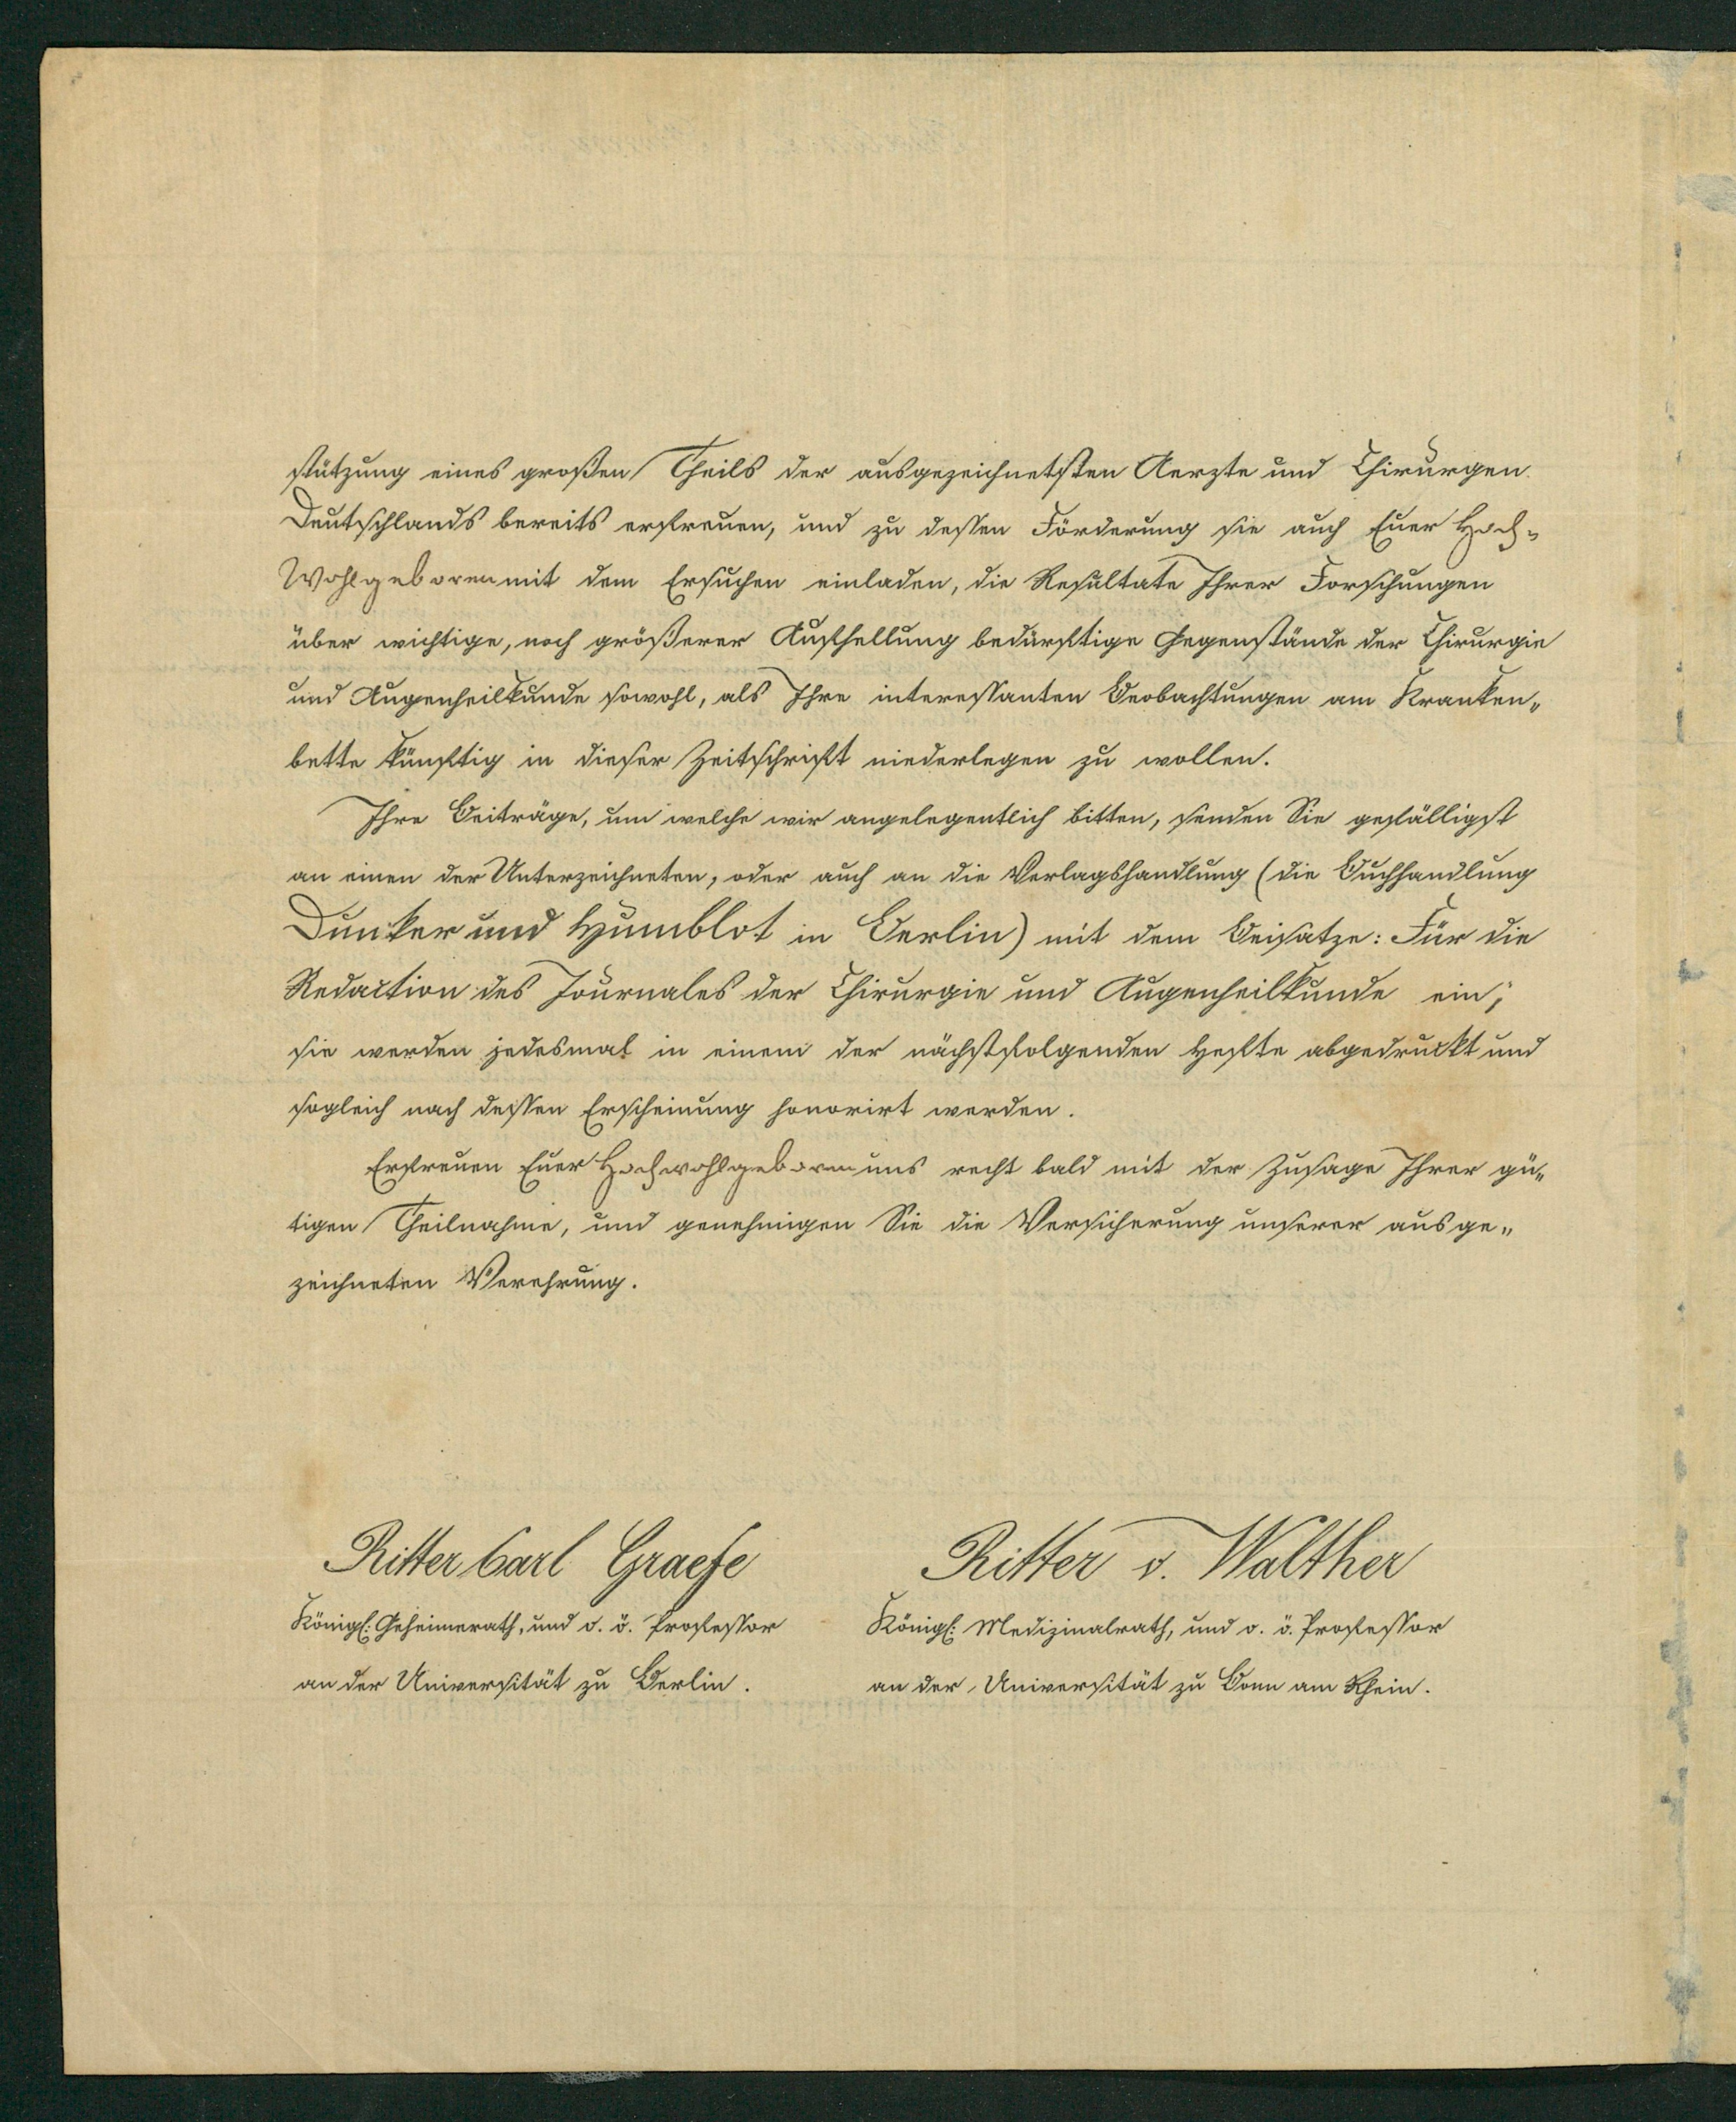 stützung eines großen Theils der ausgezeichnetsten Aerzte und Chirurgen
Deutschlands bereits erfreuen, und zu dessen Förderung sie auch Euer Hoch-
Wohlgeboren mit dem Ersuchen einladen, die Resultate Ihrer Forschungen
über wichtige, noch größerer Aufhellung bedürftige Gegenstände der Chirurgie
und Augenheilkunde sowohl, als Ihre interessanten Beobachtungen am Kranken-
bette künftig in dieser Zeitschrift niederlegen zu wollen.
Ihre Beiträge, um welche wir angelegentlich bitten, senden Sie gefälligst
an einen der Unterzeichneten, oder auch an die Verlagshandlung (die Buchhandlung
Dunker und Humblot in Berlin) mit dem Beisatze: Für die
Redaction des Journales der Chirurgie und Augenheilkunde ein;
sie werden jedesmal in einem der nächstfolgenden Hefte abgedruckt und
sogleich nach dessen Erscheinung honorirt werden.
Erfreuen Euer Hochwohlgeboren uns recht bald mit der Zusage Ihrer gü-
tigen Theilnahme, und genehmigen Sie die Versicherung unserer ausge-
zeichneten Verehrung.
Ritter Carl Graefe
Königl: Geheimerath, und o. ö. Professor
an der Universität zu Berlin.
Ritter v. Walther
Königl: Medizinalrath, und o. ö. Professor
an der Universität zu Bonn am Rhein.